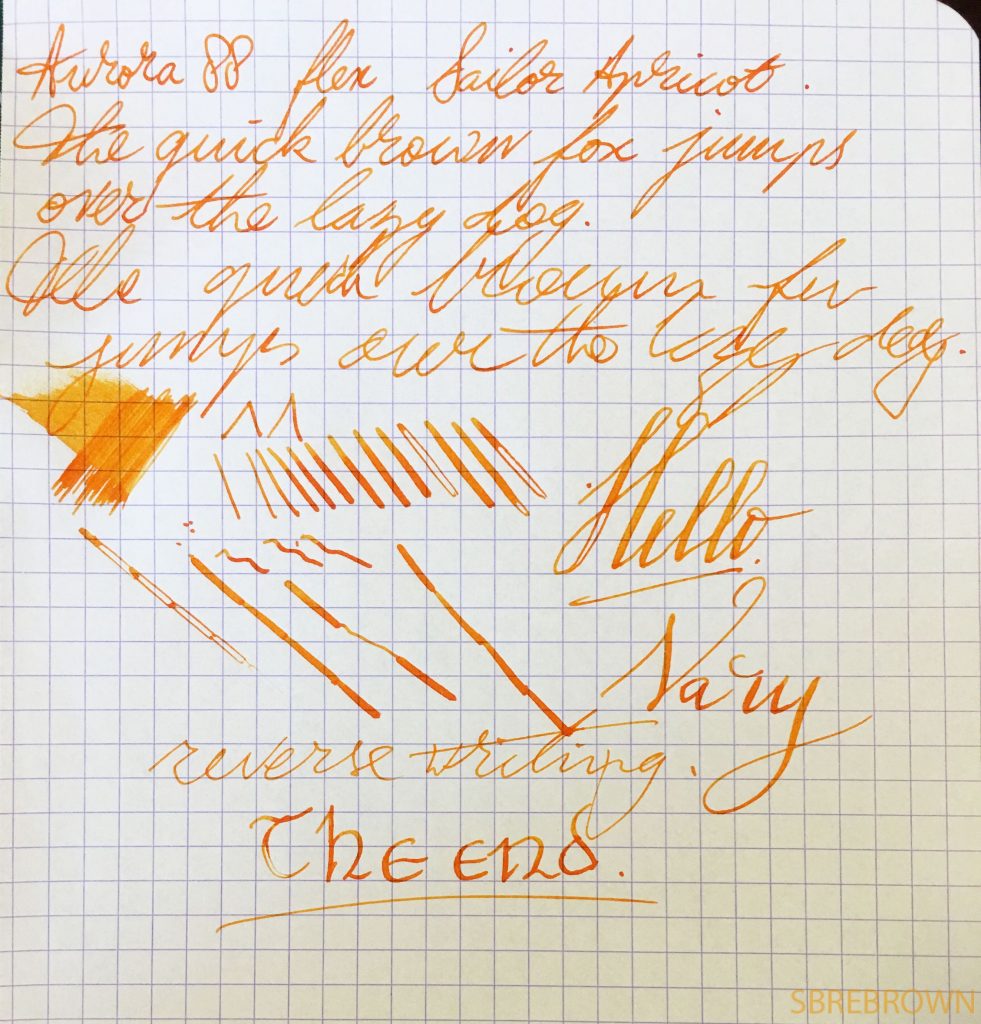 Aurora 88 flex Sailor Apricot.
The quick brown fox jumps
over the lazy dog.
The quick brown fox
jumps over the lazy dog.
Hello.
reverse writing.
The end.
SBREBROWN